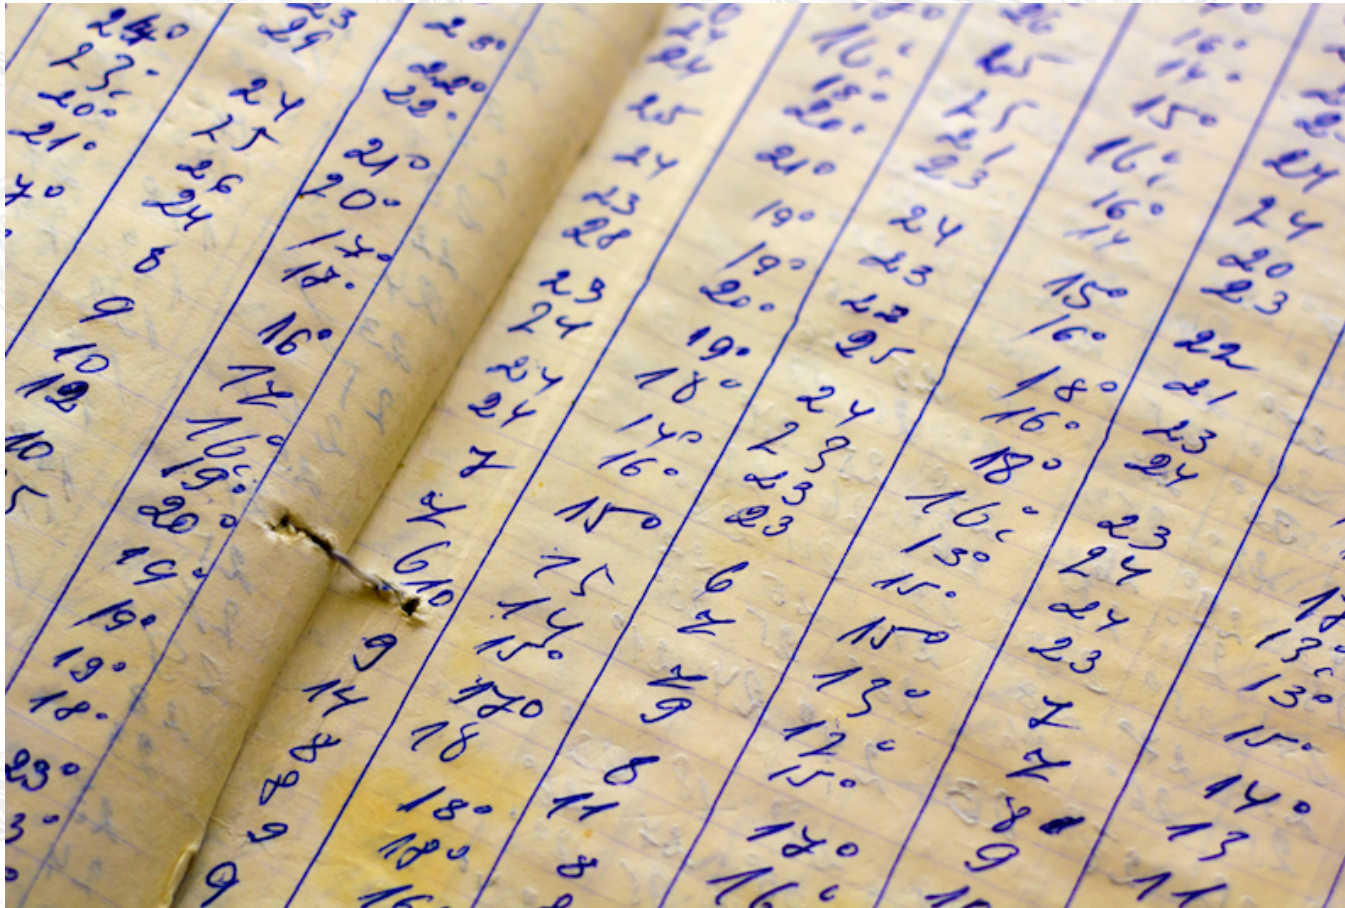 24°
23°
20°
21°
29
24
25
26
24
8
9
10
12
10
23°
22°
22°
21°
20°
17°
17°
16°
17
16°
19°
20°
19°
19°
19°
18°
23°
24
24
25
24
23
28
23
24
24
24
7
7
6
10
9
14
8
8
9
9
16°
18°
20°
21°
19°
19°
20°
19°
18°
14°
16°
15°
15
14
15°
17°
18
18°
18°
16
26
25
25
21
23
24
23
25
24
23
23
23
6
7
7
9
8
11
8
16°
14°
15°
16°
16°
14
15°
16°
18°
16°
18°
16°
13°
15°
15°
13°
17°
15°
17°
16°
24
24
20
23
22
21
23
24
23
24
24
23
7
7
8
9
10
13°
13°
15°
14°
13
11